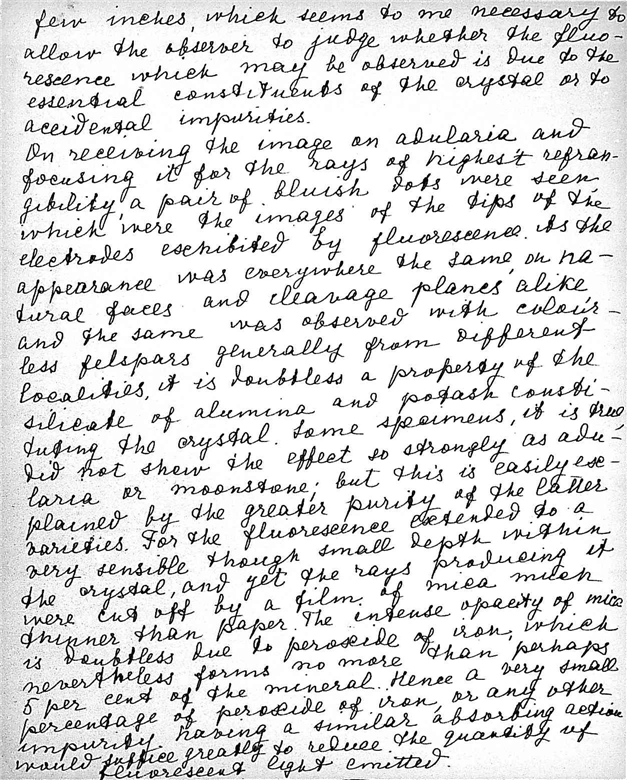 few inches, which seems to me necessary to
allow the observer to judge whether the fluo-
rescence which may be observed is due to the
essential constituents of the crystal or to
accidental impurities.
On receiving the image on adularia and
focusing it for the rays of highest refran-
gibility, a pair of bluish dots were seen
which were the images of the tips of the
electrodes exhibited by fluorescence. As the
appearance was everywhere the same, on na-
tural faces and cleavage planes alike
and the same was observed with colour-
less felspars generally from different
localities, it is doubtless a property of the
silicate of alumina and potash consti-
tuting the crystal. Some specimens, it is true,
did not show the effect so strongly as adu-
laria or moonstone; but this is easily ex-
plained by the greater purity of the latter
varieties. For the fluorescence extended to a
very sensible though small depth within
the crystal, and yet the rays producing it
were cut off by a film of mica much
thinner than paper. The intense opacity of mica
is doubtless due to peroxide of iron, which
nevertheless forms no more than perhaps
5 per cent of the mineral. Hence a very small
percentage of peroxide of iron, or any other
impurity having a similar absorbing action
would suffice greatly to reduce the quantity of
fluorescent light emitted.